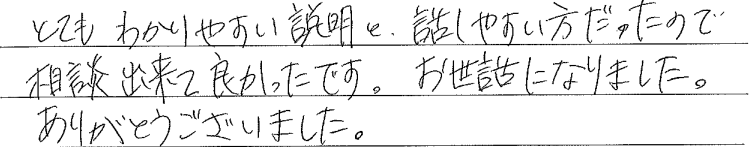 とても わかりやすい説明と、話しやすい方だったので
相談出来て良かったです。 お世話になりました。
ありがとうございました。